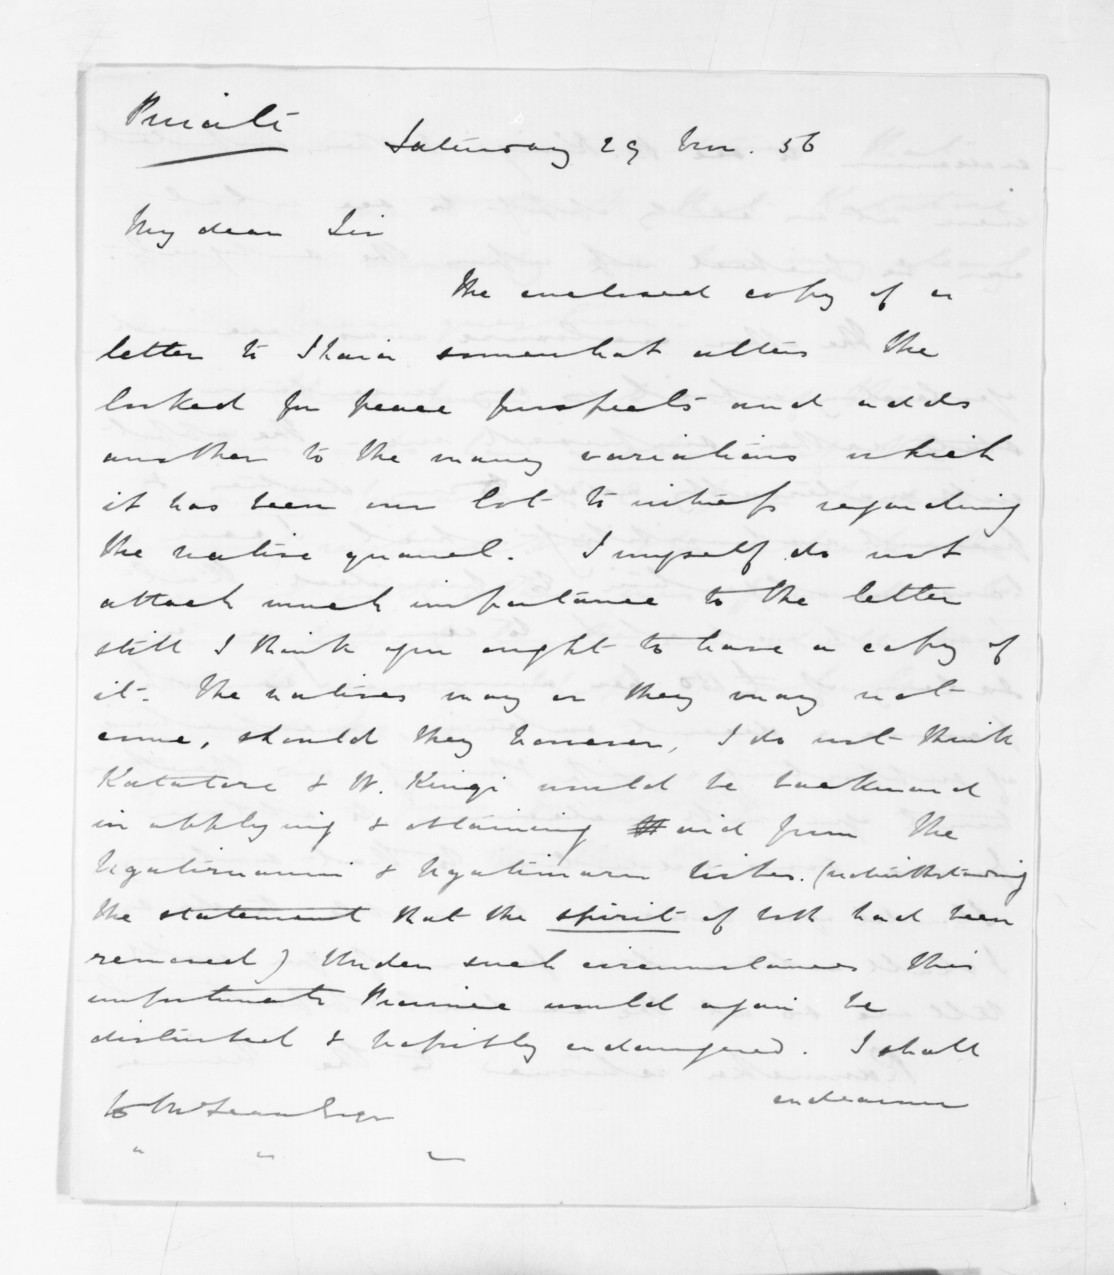 Private
Saturday 29 Nov. 56
My dear Sir
The enclosed copy of a
letter to Ihaia somewhat alters the
looked for peace prospects and adds
another to the many variations which
it has been our lot to witness regarding
the native quarrel. I myself do not
attach much importance to the letter
still I think you ought to have a copy of
it. The natives may or they may not
come, should they however, I do not think
Katatore & W. Kingi would be backward
in applying & obtaining aid from the
Ngatiruanui & Ngatimaru tribes. (notwithstanding
the statement that the spirit of both had been
removed) Under such circumstances this
unfortunate Province would again be
disturbed & possibly endangered. I shall
endeavour
D McLean Esqr
" " "